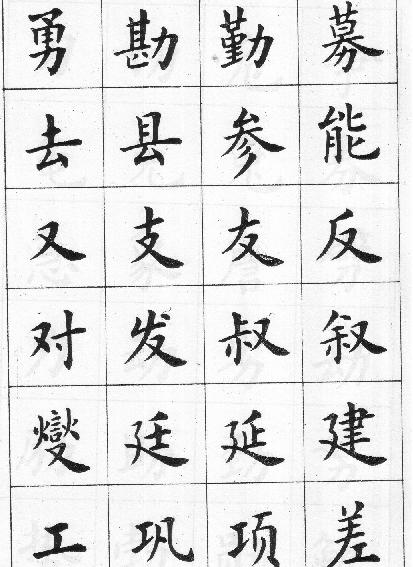 勇 勘 勤 募
去 县 参 能
又 支 友 反
对 发 叔 叙
燮 廷 延 建
工 巩 项 差